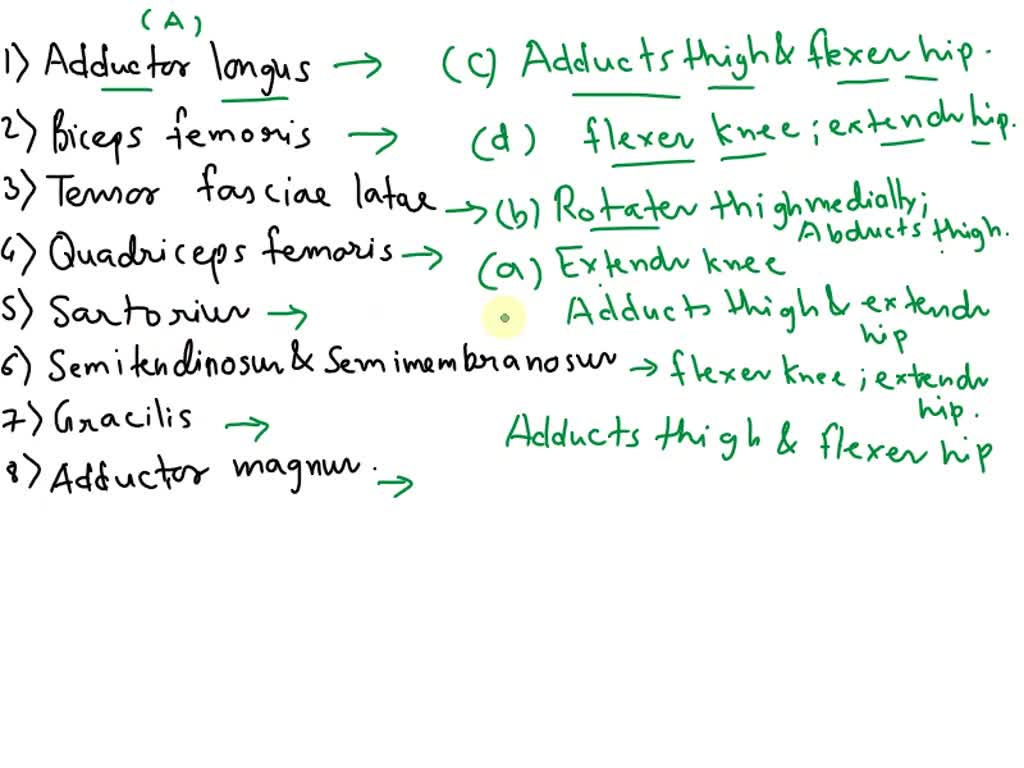 (A)
1) Adductor longus → (c) Adducts thigh & flexes hip.
2) Biceps femoris → (d) flexes knee; extends hip.
3) Tensor fasciae latae → (b) Rotates thigh medially;
Abducts thigh.
4) Quadriceps femoris → (a) Extends knee
5) Sartorius → Adducts thigh & extends
hip
6) Semitendinosus & Semimembranosus → flexes knee; extends
hip.
7) Gracilis → Adducts thigh & flexes hip
8) Adductor magnus. →